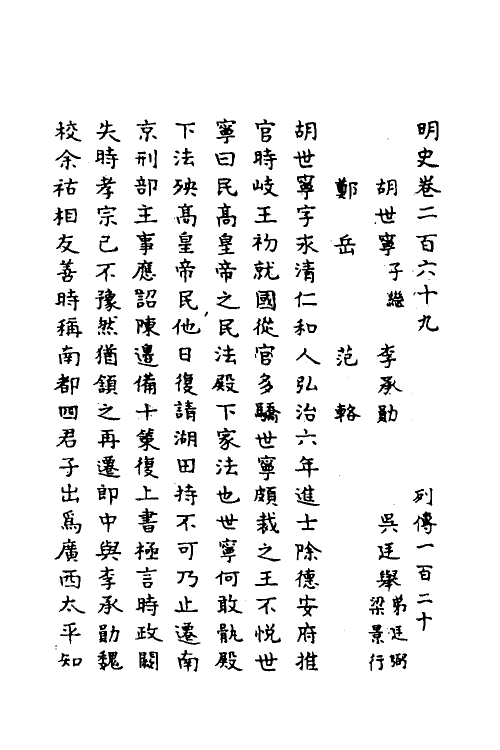 明史卷二百六十九 列傳一百二十
胡世寧子繼 李承勛 吳廷舉弟廷弼 梁景行
鄭岳 范輅
胡世寧字永清仁和人弘治六年進士除德安府推
官時岐王初就國從官多驕世寧頗裁之王不悅世
寧曰民髙皇帝之民法殿下家法也世寧何敢骩殿
下法殃髙皇帝民他日復請湖田持不可乃止遷南
京刑部主事應詔陳邊備十策復上書極言時政闕
失時孝宗已不豫然猶頷之再遷郎中與李承勛魏
校余祐相友善時稱南都四君子出爲廣西太平知